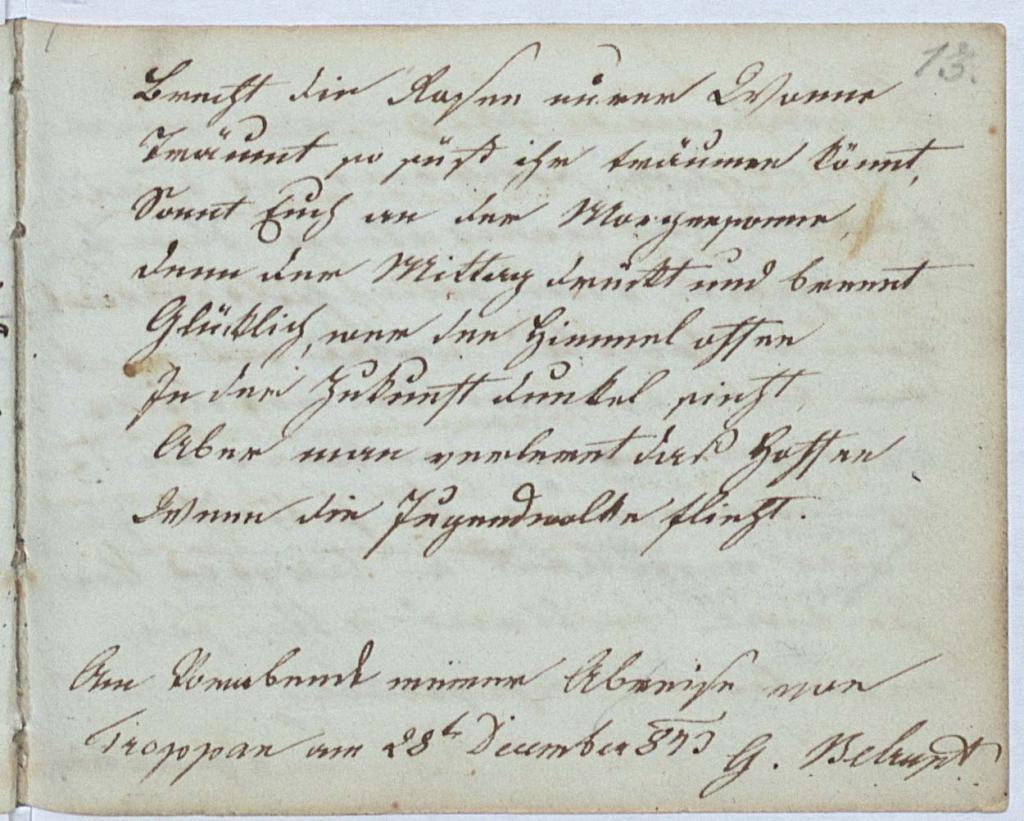 13.
Brecht die Rosen eurer Wonne
Träumt so süß ihr träumen könnt,
Sonnt Euch an der Morgensonne,
denn der Mittag drückt und brennt
Glücklich, wer den Himmel offen
In der Zukunft dunkel sieht,
Aber man verlernt daß Hoffen
Wenn die Jugendwolke flieht.
Am Vorabende meiner Abreise von
Troppau am 28t December 843 G.